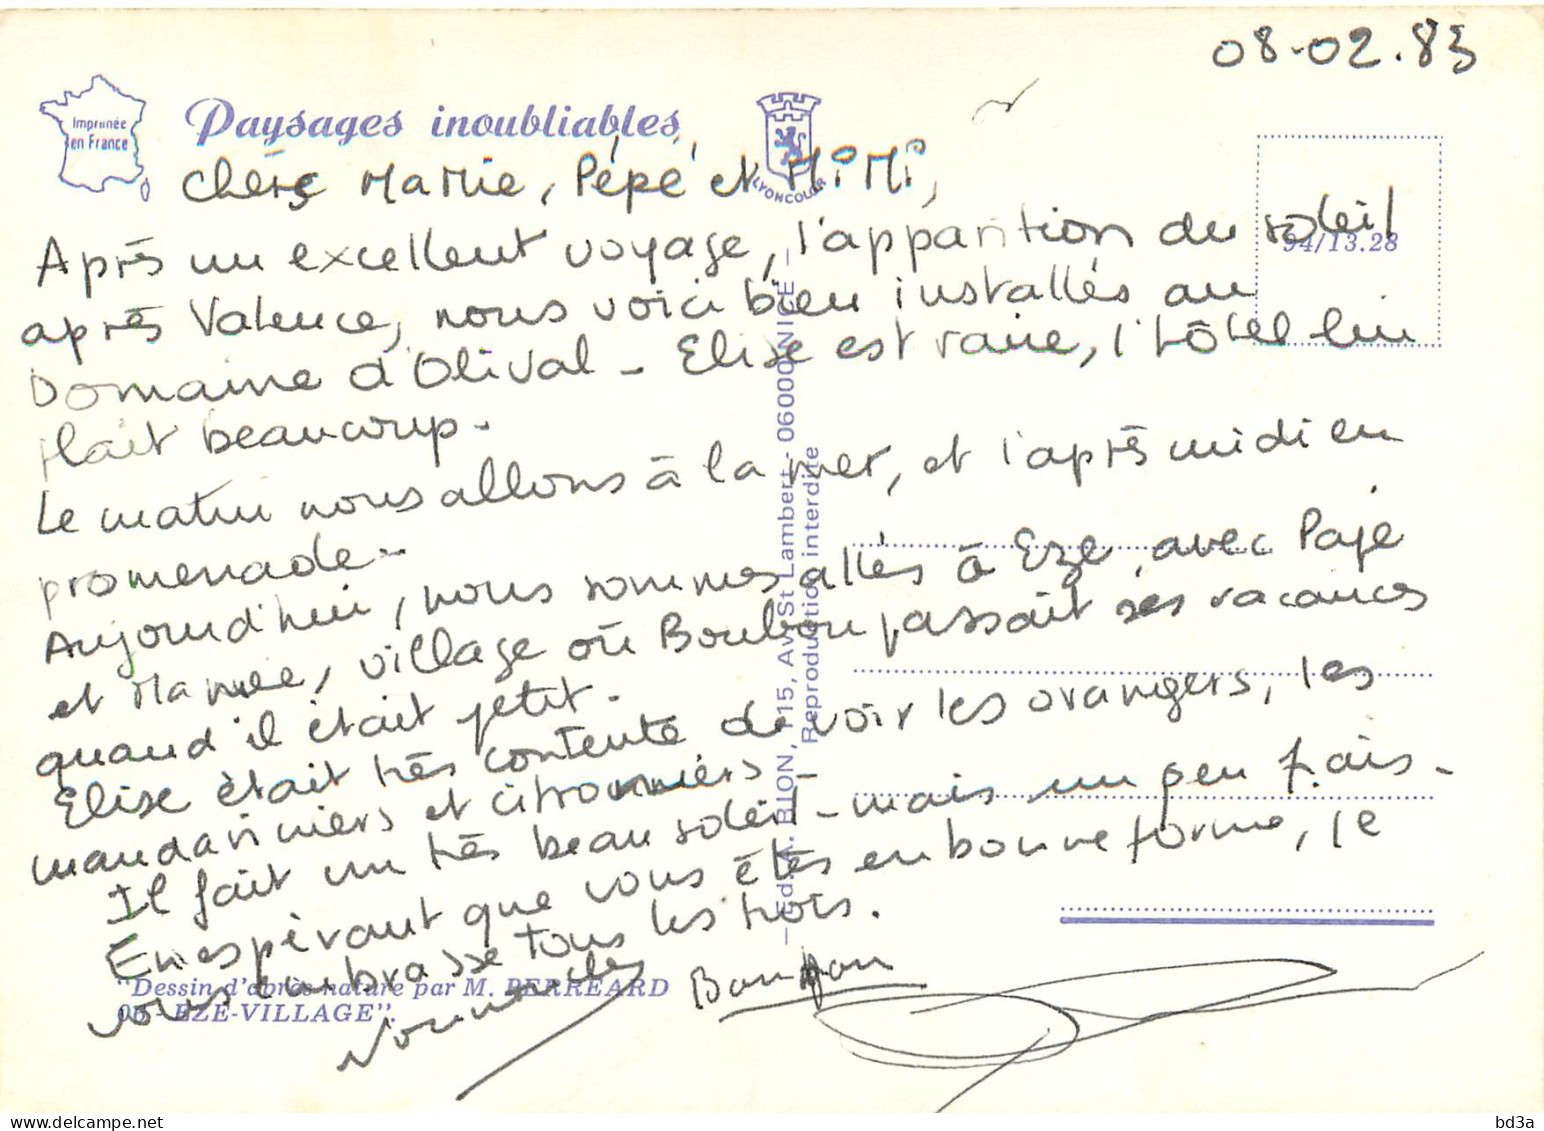 08-02.83
Imprimée
en France
Paysages inoubliables
LYONCOLOR
94/13.28
Chère Mamie, Pépé et Mimi,
Après un excellent voyage, l'apparition du soleil
après Valence, nous voici bien installés au
Domaine d'Olival - Elise est ravie, l'hôtel lui
plait beaucoup -
Le matin nous allons à la mer, et l'après midi en
promenade -
Aujourd'hui, nous sommes allés à Eze, avec Pajé
et Manée, village où Boubou passait ses vacances
quand il était petit -
Elise était très contente de voir les orangers, les
mandariniers et citronniers -
Il fait un très beau soleil - mais un peu frais -
En espérant que vous êtes en bonne forme, je
vous embrasse tous les trois.
Ed. A. BION, 115, Av. St Lambert - 06000 NICE -
Reproduction interdite
"Dessin d'après nature par M. PERREARD
06 - EZE-VILLAGE".